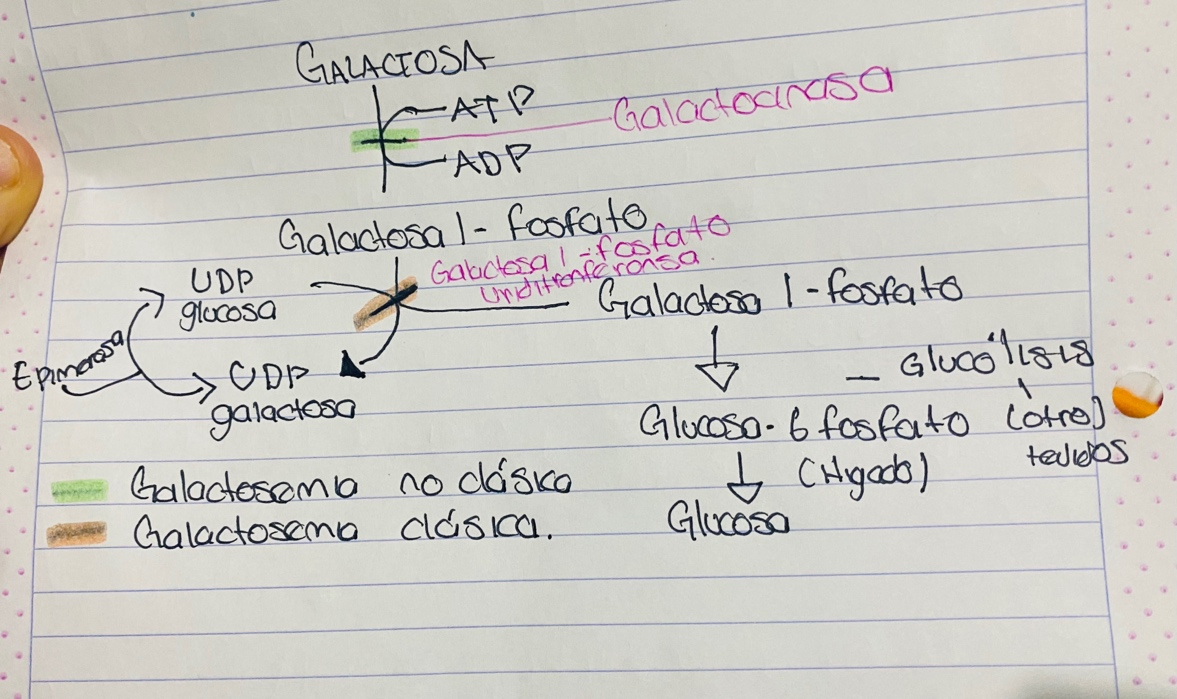 GALACTOSA
ATP
Galactocinasa
ADP
Galactosa 1- fosfato
Galactosa 1-fosfato
Uriditronferonsa.
UDP
glucosa
Galactosa 1-fosfato
Epimerasa
UDP
galactosa
- Glucólisis
Glucosa-6 fosfato (otro)
tejidos
(Higado)
Glucosa
Galactosema no clásica
Galactosema clásica.